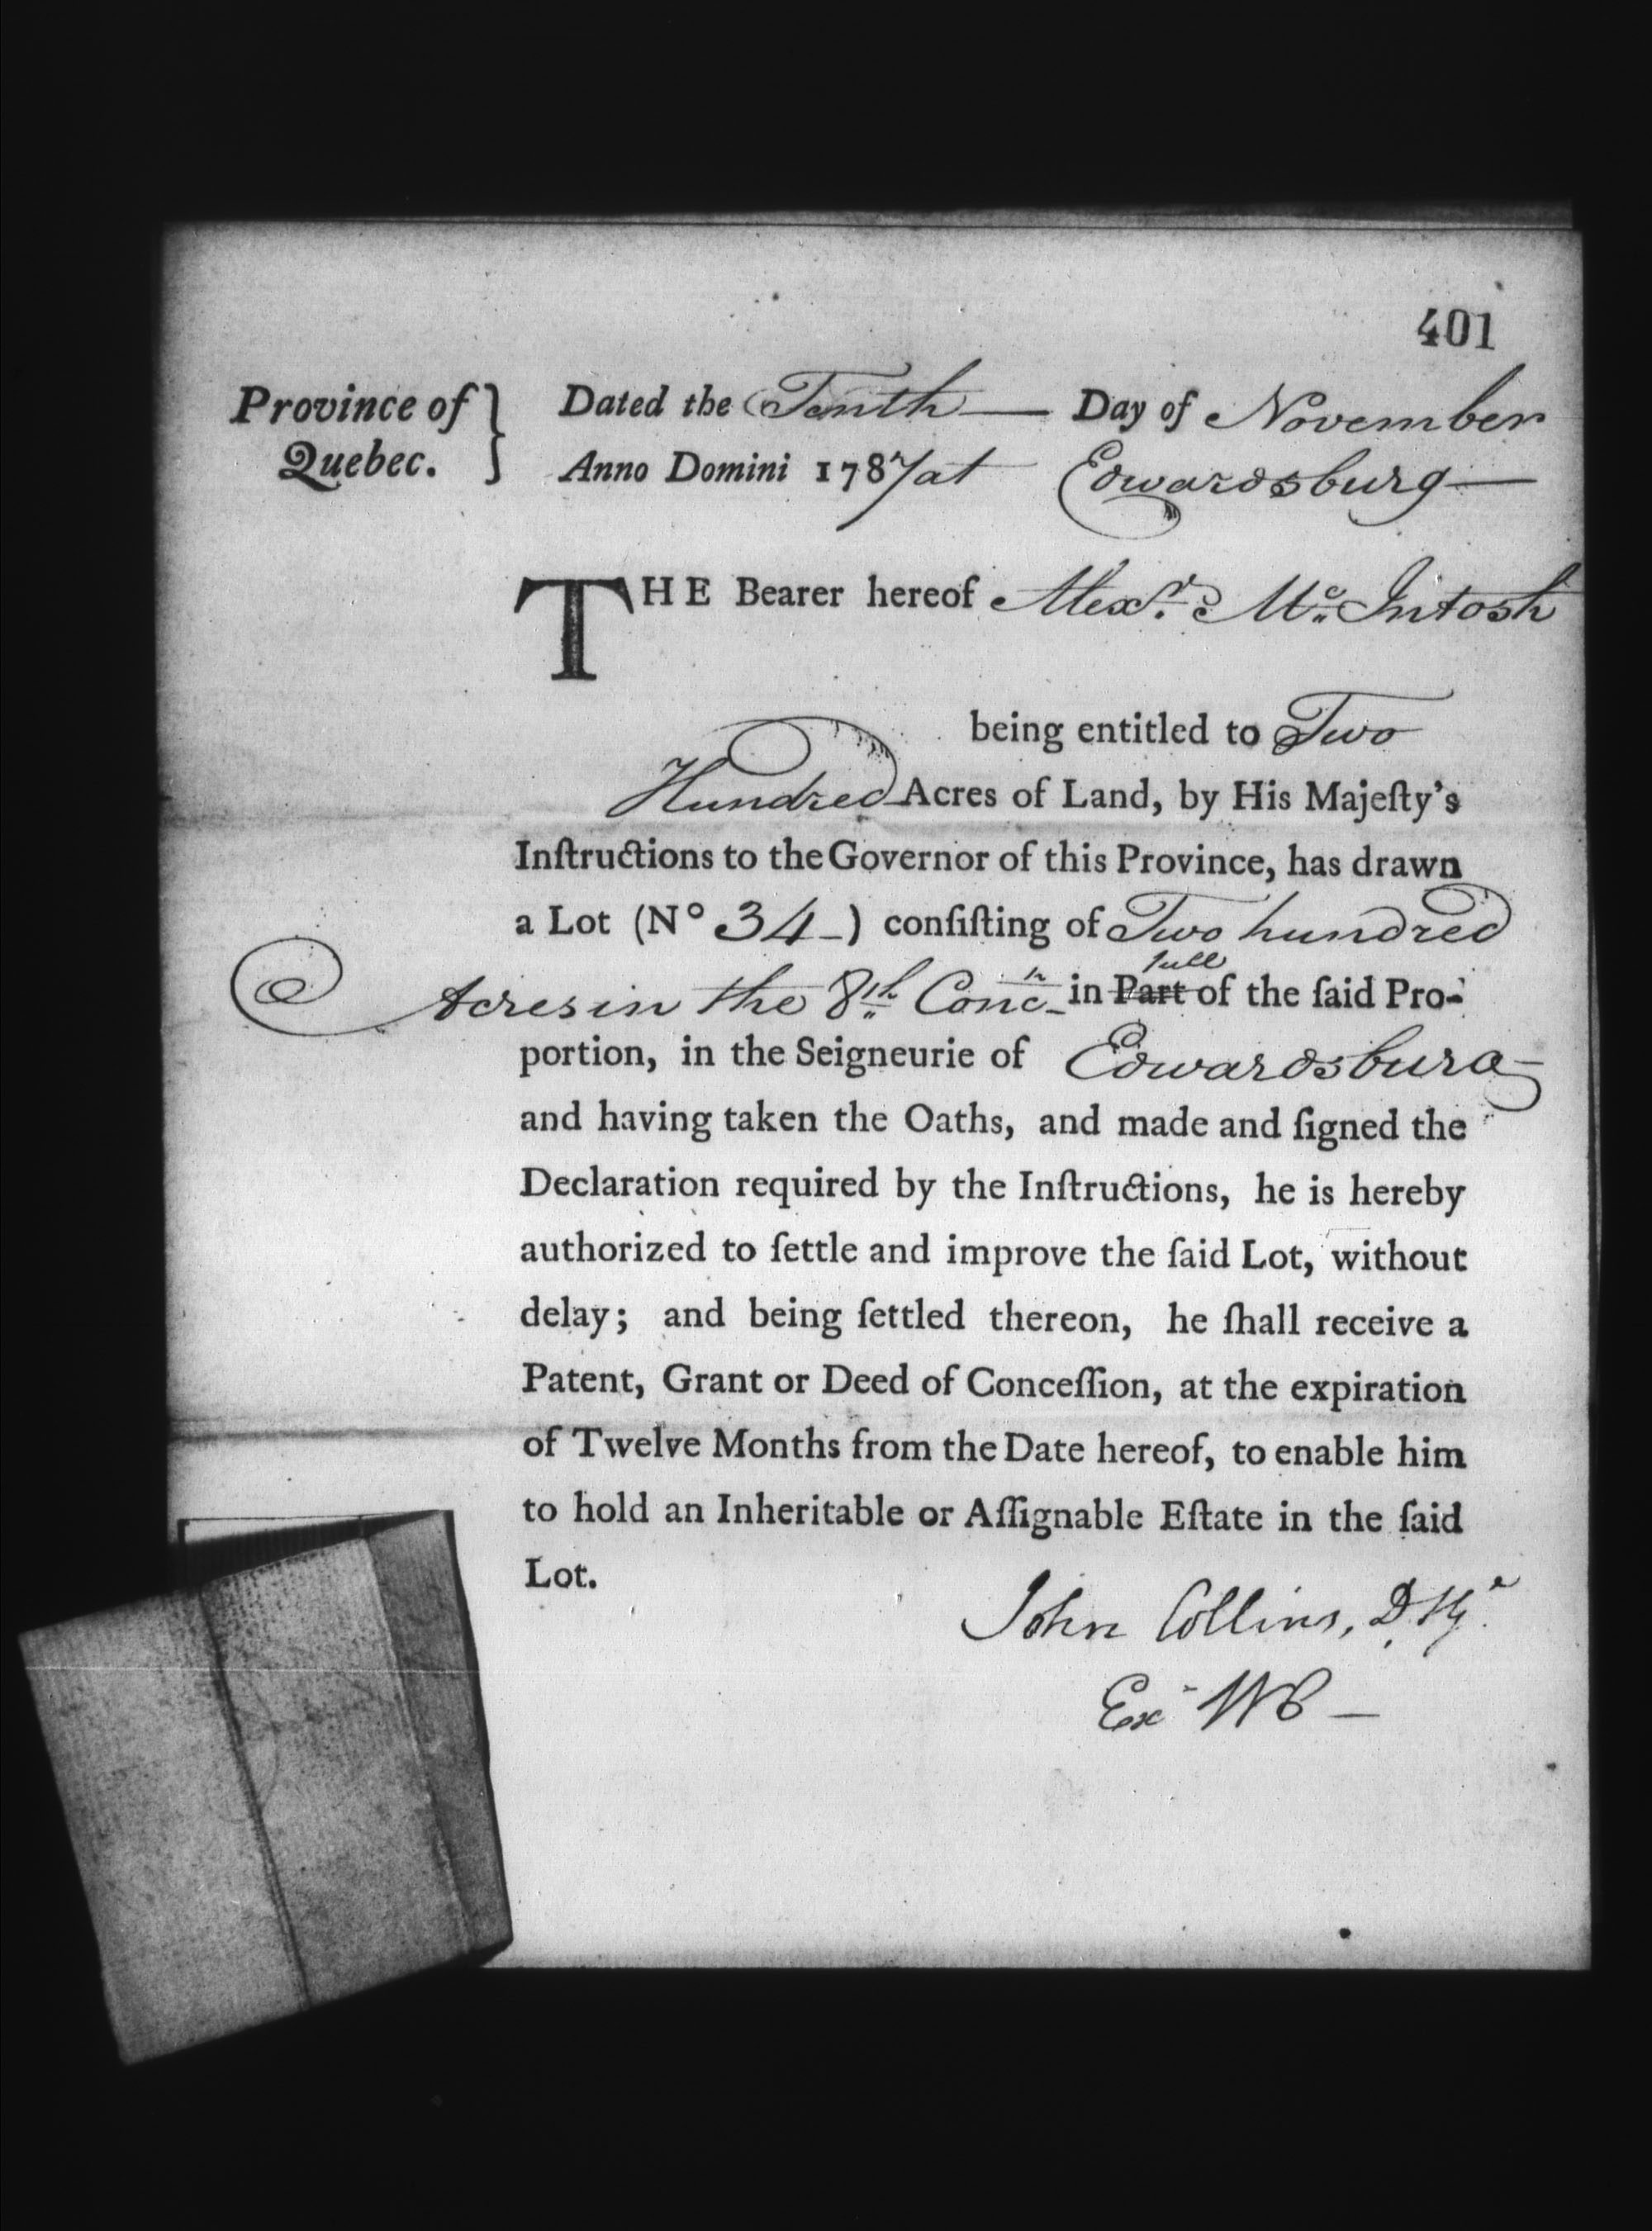 401
Province of Quebec. } Dated the Tenth — Day of November
Anno Domini 1787 at Edwardsburg —
THE Bearer hereof Alexr. Mc. Intosh
being entitled to Two
Hundred Acres of Land, by His Majeſty's
Inſtructions to the Governor of this Province, has drawn
a Lot (No 34 -) conſiſting of Two hundred
Acres in the 8th Concn in ~~Part~~ full of the ſaid Pro-
portion, in the Seigneurie of Edwardsburg
and having taken the Oaths, and made and ſigned the
Declaration required by the Inſtructions, he is hereby
authorized to ſettle and improve the ſaid Lot, without
delay; and being ſettled thereon, he ſhall receive a
Patent, Grant or Deed of Conceſſion, at the expiration
of Twelve Months from the Date hereof, to enable him
to hold an Inheritable or Aſſignable Eſtate in the ſaid
Lot.
John Collins, D.
Ex WC —